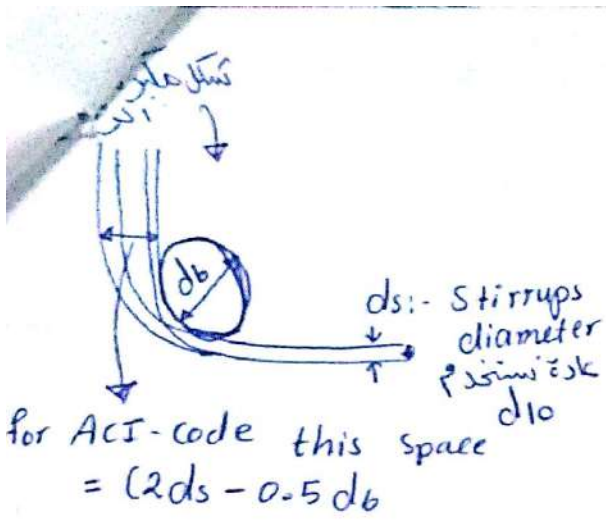 شكل
db
ds:- Stirrups
diameter
عادة نستخدم
d10
for ACI-code this space
= (2ds - 0.5db